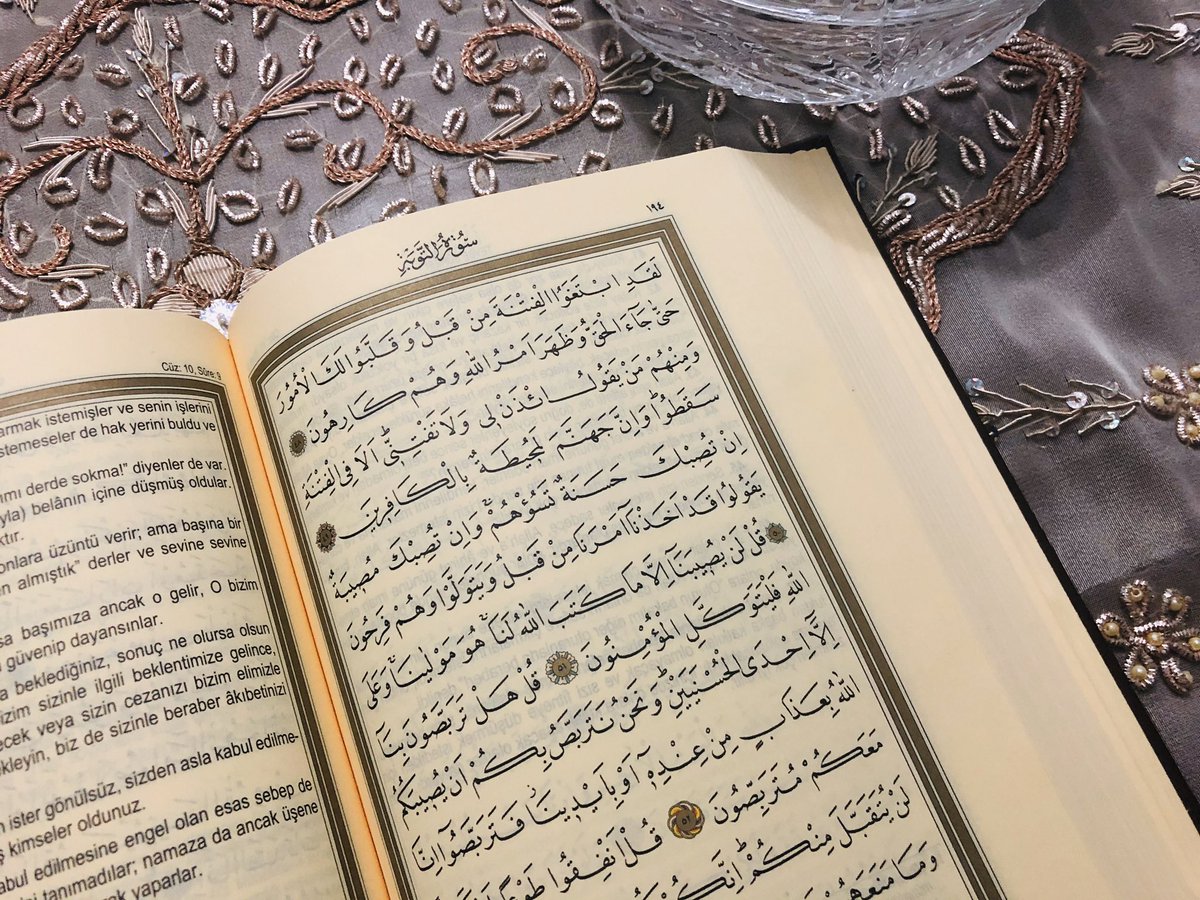 ١٩٤
سُورَةُ التَّوْبَةِ
لَقَدِ ابْتَغَوُا الْفِتْنَةَ مِنْ قَبْلُ وَقَلَّبُوا لَكَ الْاُمُورَ
حَتّٰى جَٓاءَ الْحَقُّ وَظَهَرَ اَمْرُ اللّٰهِ وَهُمْ كَارِهُونَ
وَمِنْهُمْ مَنْ يَقُولُ ائْذَنْ ل۪ى وَلَا تَفْتِنّ۪ىۜ اَلَا فِى الْفِتْنَةِ
سَقَطُواۜ وَاِنَّ جَهَنَّمَ لَمُح۪يطَةٌ بِالْكَافِر۪ينَ
اِنْ تُصِبْكَ حَسَنَةٌ تَسُؤْهُمْۚ وَاِنْ تُصِبْكَ مُص۪يبَةٌ
يَقُولُوا قَدْ اَخَذْنَٓا اَمْرَنَا مِنْ قَبْلُ وَيَتَوَلَّوْا وَهُمْ فَرِحُونَ
قُلْ لَنْ يُص۪يبَنَٓا اِلَّا مَا كَتَبَ اللّٰهُ لَنَاۚ هُوَ مَوْلٰينَاۚ وَعَلَى
اللّٰهِ فَلْيَتَوَكَّلِ الْمُؤْمِنُونَ ٥١ قُلْ هَلْ تَرَبَّصُونَ بِنَٓا
اِلَّٓا اِحْدَى الْحُسْنَيَيْنِۜ وَنَحْنُ نَتَرَبَّصُ بِكُمْ اَنْ يُص۪يبَكُمُ
اللّٰهُ بِعَذَابٍ مِنْ عِنْدِه۪ٓ اَوْ بِاَيْد۪ينَاۘ فَتَرَبَّصُٓوا اِنَّا
مَعَكُمْ مُتَرَبِّصُونَ ٥٢ قُلْ اَنْفِقُوا طَوْعًا
لَنْ يُتَقَبَّلَ مِنْكُمْۜ اِنَّكُمْ
وَمَا مَنَعَهُمْ
Cüz: 10, Sûre: 9
armak istemişler ve senin işlerini
stemeseler de hak yerini buldu ve
ımı derde sokma!” diyenler de var.
yla) belânın içine düşmüş oldular.
ktır.
onlara üzüntü verir; ama başına bir
en almıştık” derler ve sevine sevine
sa başımıza ancak o gelir, O bizim
güvenip dayansınlar.
a beklediğiniz, sonuç ne olursa olsun
izim sizinle ilgili beklentimize gelince,
ecek veya sizin cezanızı bizim elimizle
kleyin, biz de sizinle beraber âkıbetinizi
n ister gönülsüz, sizden asla kabul edilme-
ş kimseler oldunuz.
abul edilmesine engel olan esas sebep de
tanımadılar; namaza da ancak üşene
ak yaparlar.